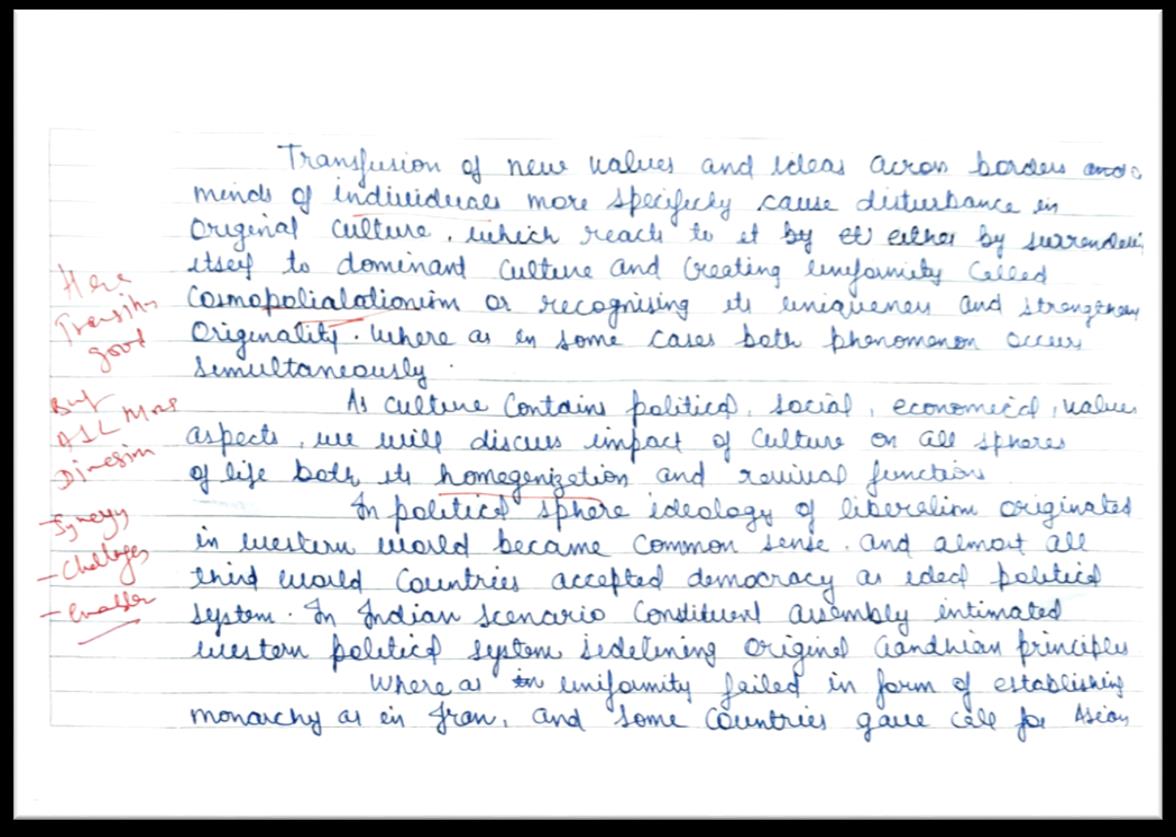 Transfusion of new values and ideas across borders and
minds of individuals more specificly cause disturbance in
Original culture, which reacts to it by either by surrendering
itself to dominant culture and creating uniformity called
Cosmopolialationism or recognising its uniqueness and strengthen
Originality. Where as in some cases both phenomenon occurs
simultaneously.
As culture contains political, social, economical, values
aspects, we will discuss impact of culture on all spheres
of life both its homogenization and revival function
In political sphere ideology of liberalism originated
in western world became common sense. and almost all
third world countries accepted democracy as ideal political
system. In Indian scenario Constituent assembly intimated
western political system sidelining original Gandhian principles
Where as uniformity failed in form of establishing
monarchy as in Iran, and some countries gave call for Asian
Here
good
But
More
- Synergy
- Challenges
- enabler